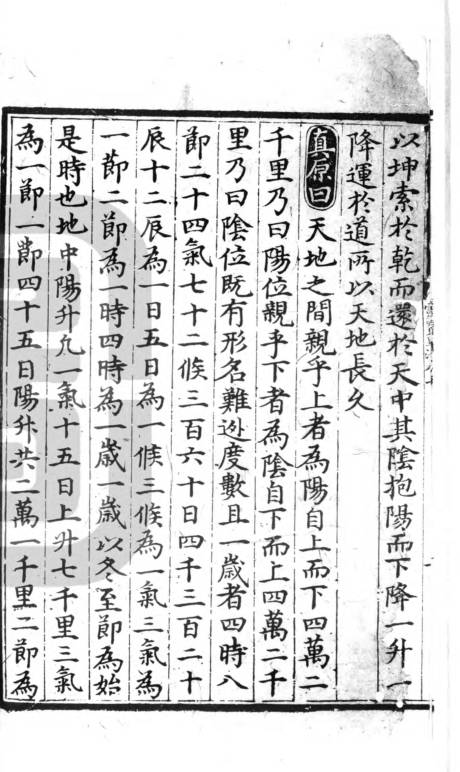 以坤索於乾而還於天中其陰抱陽而下降一升一
降運於道所以天地長久
真原曰 天地之間親乎上者為陽自上而下四萬二
千里乃曰陽位親乎下者為陰自下而上四萬二千
里乃曰陰位既有形名難逃度數且一歲者四時八
節二十四氣七十二候三百六十日四千三百二十
辰十二辰為一日五日為一候三候為一氣三氣為
一節二節為一時四時為一歲一歲以冬至節為始
是時也地中陽升凢一氣十五日上升七千里三氣
為一節一節四十五日陽升共二萬一千里二節為